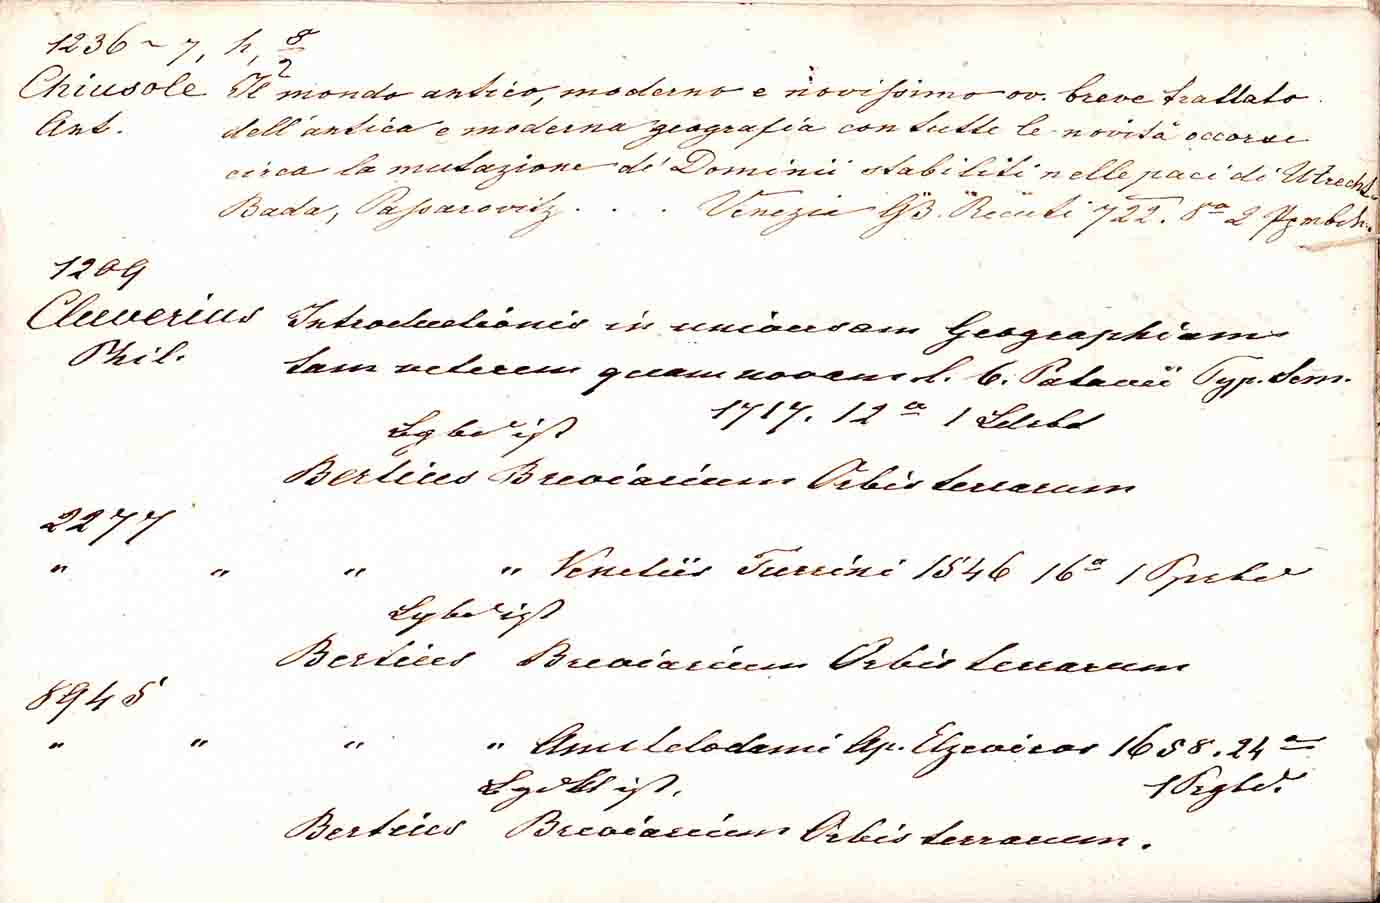 1236-7, h, 8/2
Chiusole Il mondo antico, moderno e novissimo ov. breve trattato
Ant. dell'antica e moderna geografia con tutte le novità occorse
circa la mutazione de' Dominii stabiliti nelle paci di Utrecht
Bada, Passarovitz . . . Venezia GB. Recurti 722. 8ª 2 Pgmbch.
1209
Cluverius Introductionis in universam Geographiam
Phil. tam veterem quam novam l. 6. Patavii Typ. Sem.
1717. 12ª 1 Ldrbd
ist
Bertius Breviarium Orbis terrarum
2277
" " " " Venetiis Turrini 1546 16ª 1
ist
Bertius Breviarium Orbis terrarum
8945
" " " " Amstelodami Ap. Elzevirios 1658. 24ª
ist. 1
Bertius Breviarium Orbis terrarum.